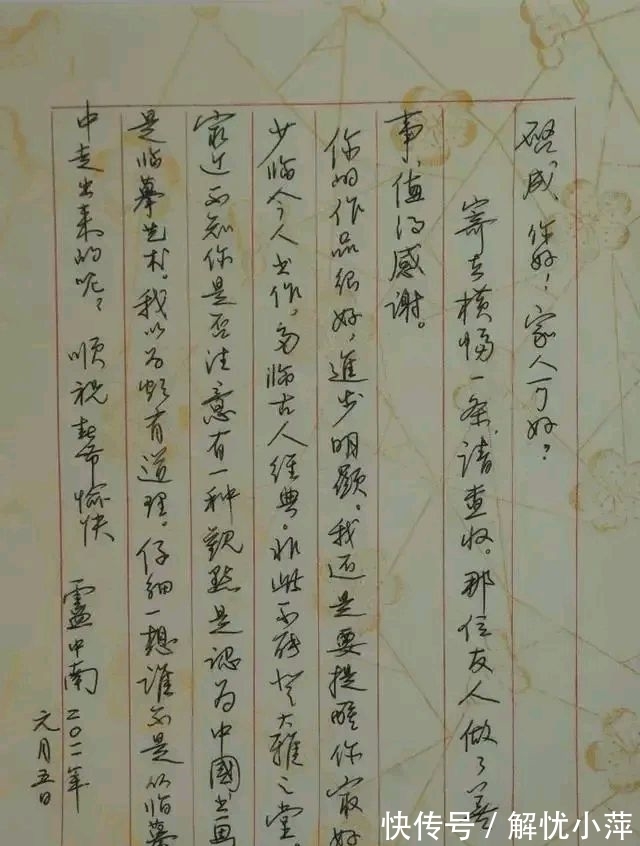 启成 你好！家人可好？
寄去横幅一条，请查收。那位友人做了善
事，值得感谢。
你的作品很好，進步明顯。我还是要提醒你最好
少临今人书作，多临古人经典。非此不能登大雅之堂。
最近不知你是否注意有一种觀點是認为中國书画
是临摹艺术。我以为颇有道理。仔细一想谁不是从临摹
中走出来的呢？顺祝 愉快 盧中南 二〇一一年
元月五日
快传号 / 解忧小萍